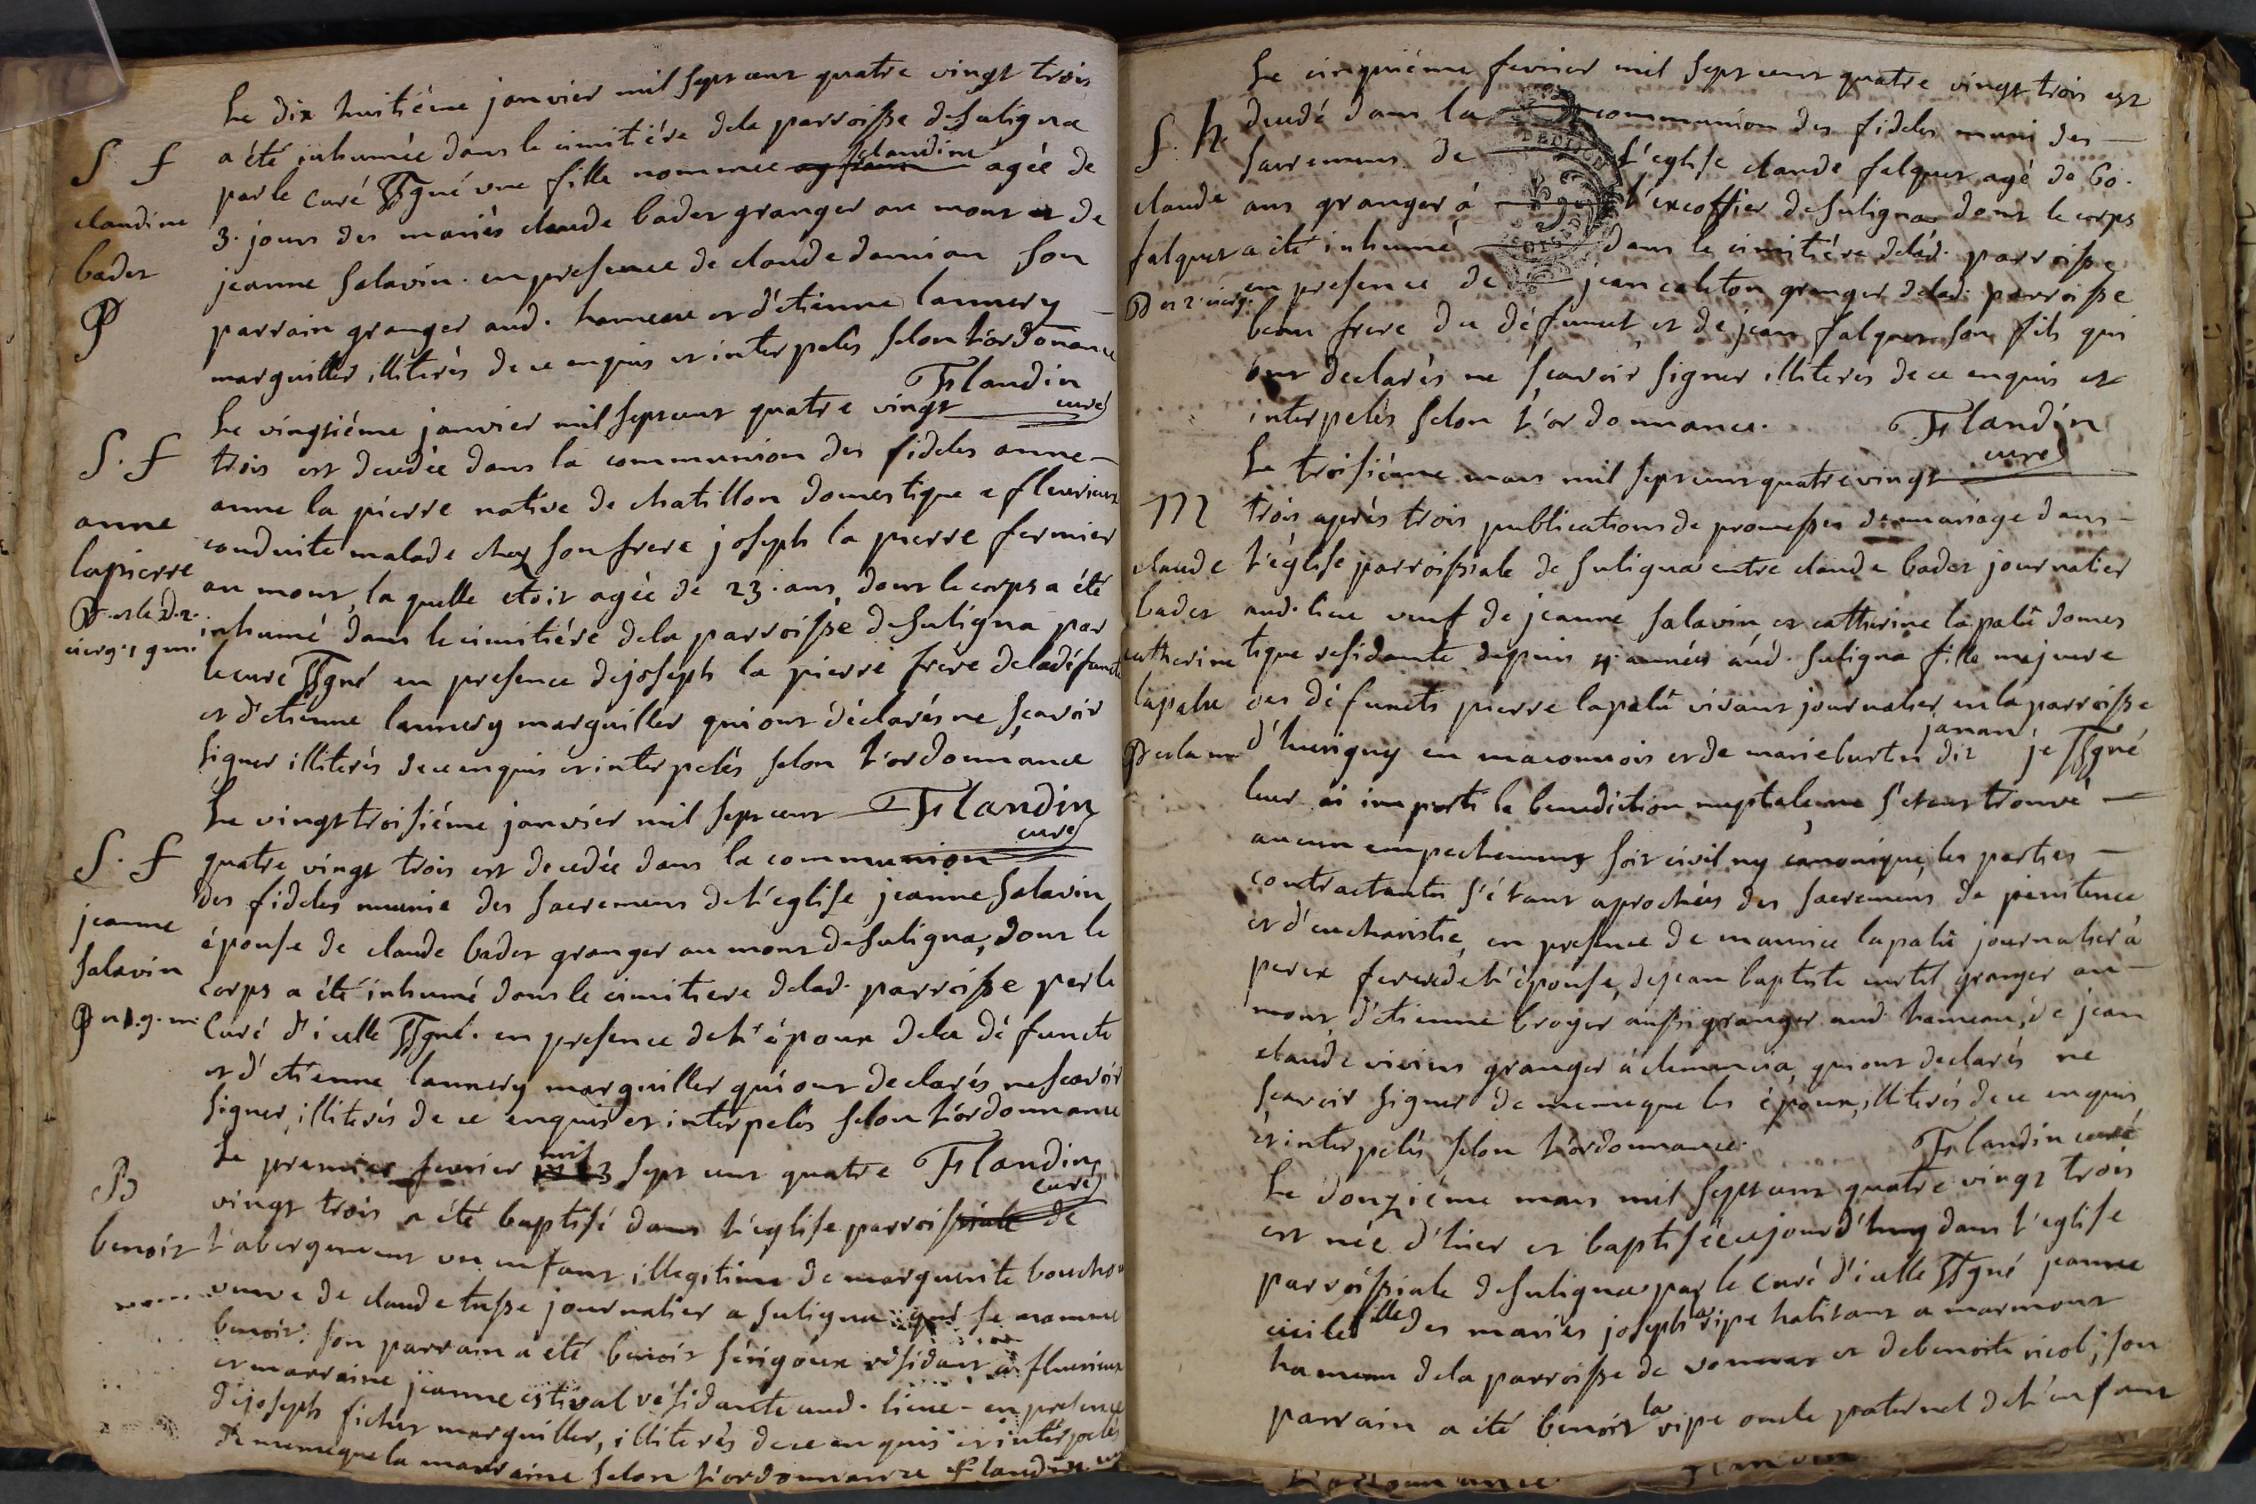 Le dix huitiéme janvier mil sept cent quatre vingt trois
S f a été inhumée dans le cimitiére dela parroisse de Suligna
par le curé ssgné une fille nommée claudine agée de
claudine 3. jours des mariés claude badet granger au mont et de
badet jeanne salavin. en presence de claude damian son
parrain granger aud. hameau et d'etienne lannery
marguiller illiterés de ce enquis et interpelés selon l'ordonance
Flandin
curé
Le vingtiéme janvier mil sept cent quatre vingt
S. f trois est decedée dans la communion des fideles anne
anne la pierre native de chatillon domestique a fleurieux
anne conduite malade chez son frere joseph la pierre fermier
lapierre au mont, la quelle etoit agée de 23. ans, dont le corps a été
inhumé dans le cimitiére dela parroisse de Suligna par
le curé ssgné en presence de joseph la pierre frére de la défuncte
et d'etienne lannery marguiller qui ont déclarés ne sçavoir
signer illiterés de ce enquis et interpelés selon l'ordonnance
Le vingt troisiéme janvier mil sept cent Flandin
curé
S. f quatre vingt trois est decedée dans la communion
des fideles munie des sacremens de l'eglise jeanne salavin
jeanne épouse de claude badet granger au mont de suligna, dont le
salavin corps a été inhumé dans le cimitiere delad. parroisse par le
curé d'icelle ssgné. en presence de l'époux dela défuncte
et d'etienne lannery marguiller qui ont declarés ne scavoir
signer, illiterés de ce enquis et interpelés selon l'ordonnance
Le premier fevrier mil sept cent quatre Flandin
curé
B vingt trois a été baptisé dans l'eglise parroissiale de
benoit l'abergement un enfant illegitime de marguerite bouchon
veuve de claude tusse journalier a suligna qui se nomme
benoit. son parrain a été benoit serigoux résidant a fleurieux
et marraine jeanne estival résidante aud. lieu en presence
de joseph fichet marguiller, illiterés de ce enquis et interpelés
de memeque la marraine selon l'ordonnance Flandin curé
Le cinquiéme fevrier mil sept cent quatre vingt trois est
S. h decedé dans la communion des fideles muni des
sacremens de l'eglise claude falquet agé de 60.
claude ans granger á l'excoffier de suligna dont le corps
falquet a été inhumé dans le cimitiére delad. parroisse
en presence de jean caleton granger delad. parroisse
beau frere du défunct, et de jean falquet son fils qui
ont declarés ne sçavoir signer illiterés de ce enquis et
interpelés selon l'ordonnance. Flandin
curé
Le troisiéme mars mil sept cent quatre vingt
M trois aprés trois publications de promesses de mariage dans
claude l'église parroissiale de suligna entre claude badet journalier
badet aud. lieu veuf de jeanne salavin, et catherine lapalû domes
catherine tique residante depuis 4 années aud. suligna fille majeure
lapalu des défuncts pierre lapalû vivant journalier en la parroisse
janan
d'hurigny en maconnois et de marie burtin dit je ssgné
leur ai imparti la benediction nuptiale, ne s'etant trouvé
aucun empechement soit civil ny canonique, les parties
contractantes s'étant aprochées des sacremens de penitence
et d'eucharistie, en presence de maurice lapalû journalier á
perex frere de l'épouse, de jean baptiste curtil granger au
mont, d'etienne broyer aussi granger aud. hameau, de jean
claude vivius granger á clemencia, qui ont declarés ne
sçavoir signer de memeque les époux, illiterés de ce enquis,
et interpelés selon l'ordonnance. Flandin curé
Le douziéme mars mil sept cent quatre vingt trois
est née d'hier et baptisée cejourd'huy dans l'eglise
parroissiale de suligna par le curé d'icelle ssgné jeanne
fille des mariés joseph la vipe habitant a marmont
hameau dela parroisse de vonnas et de benoite nicol; son
parrain a été benoit la vipe oncle paternel de l'enfant